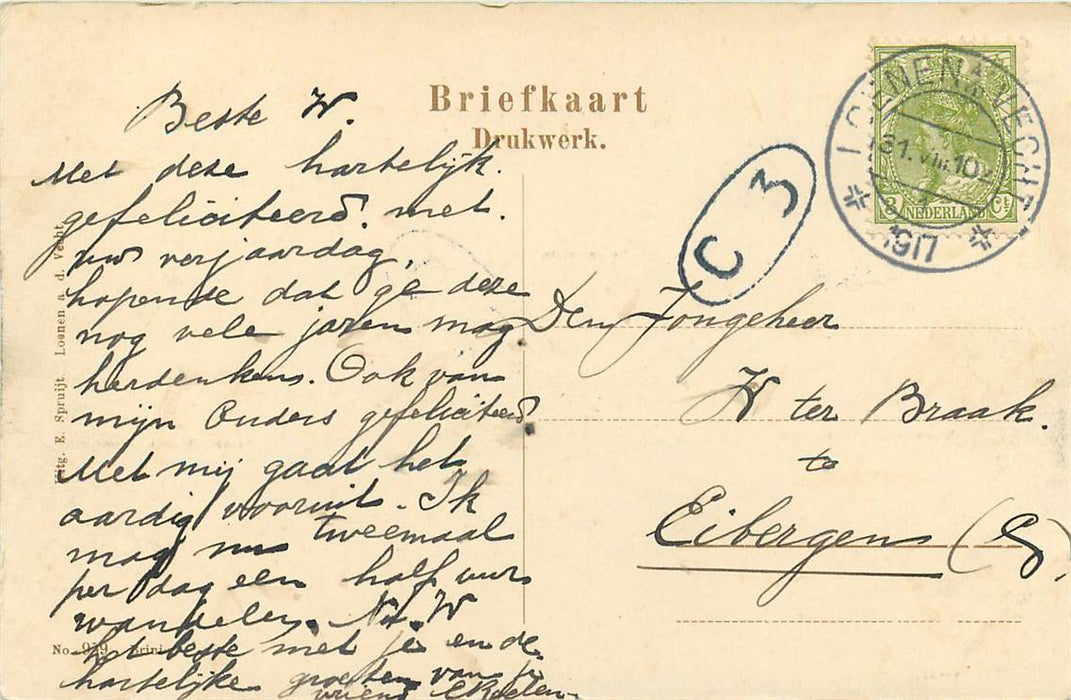 Briefkaart
Drukwerk.
LOENEN A/VECHT
31.VIII.10
1917
3 NEDERLAND Ct
C 3
Beste W.
Met deze hartelijk.
gefeliciteerd met.
uw verjaardag,
hopende dat ge deze
nog vele jaren mag
herdenken. Ook van
mijn Ouders gefeliciteerd
Met mij gaat het
aardig vooruit. Ik
mag nu tweemaal
per dag een half uur
wandelen. Nu W
het beste met je en de
hartelijke groeten van je
vriend
Den Jongeheer
W ter Braak.
te
Eibergen (G).
Uitg. E. Spruijt. Loenen a. d. Vecht.
No. 959